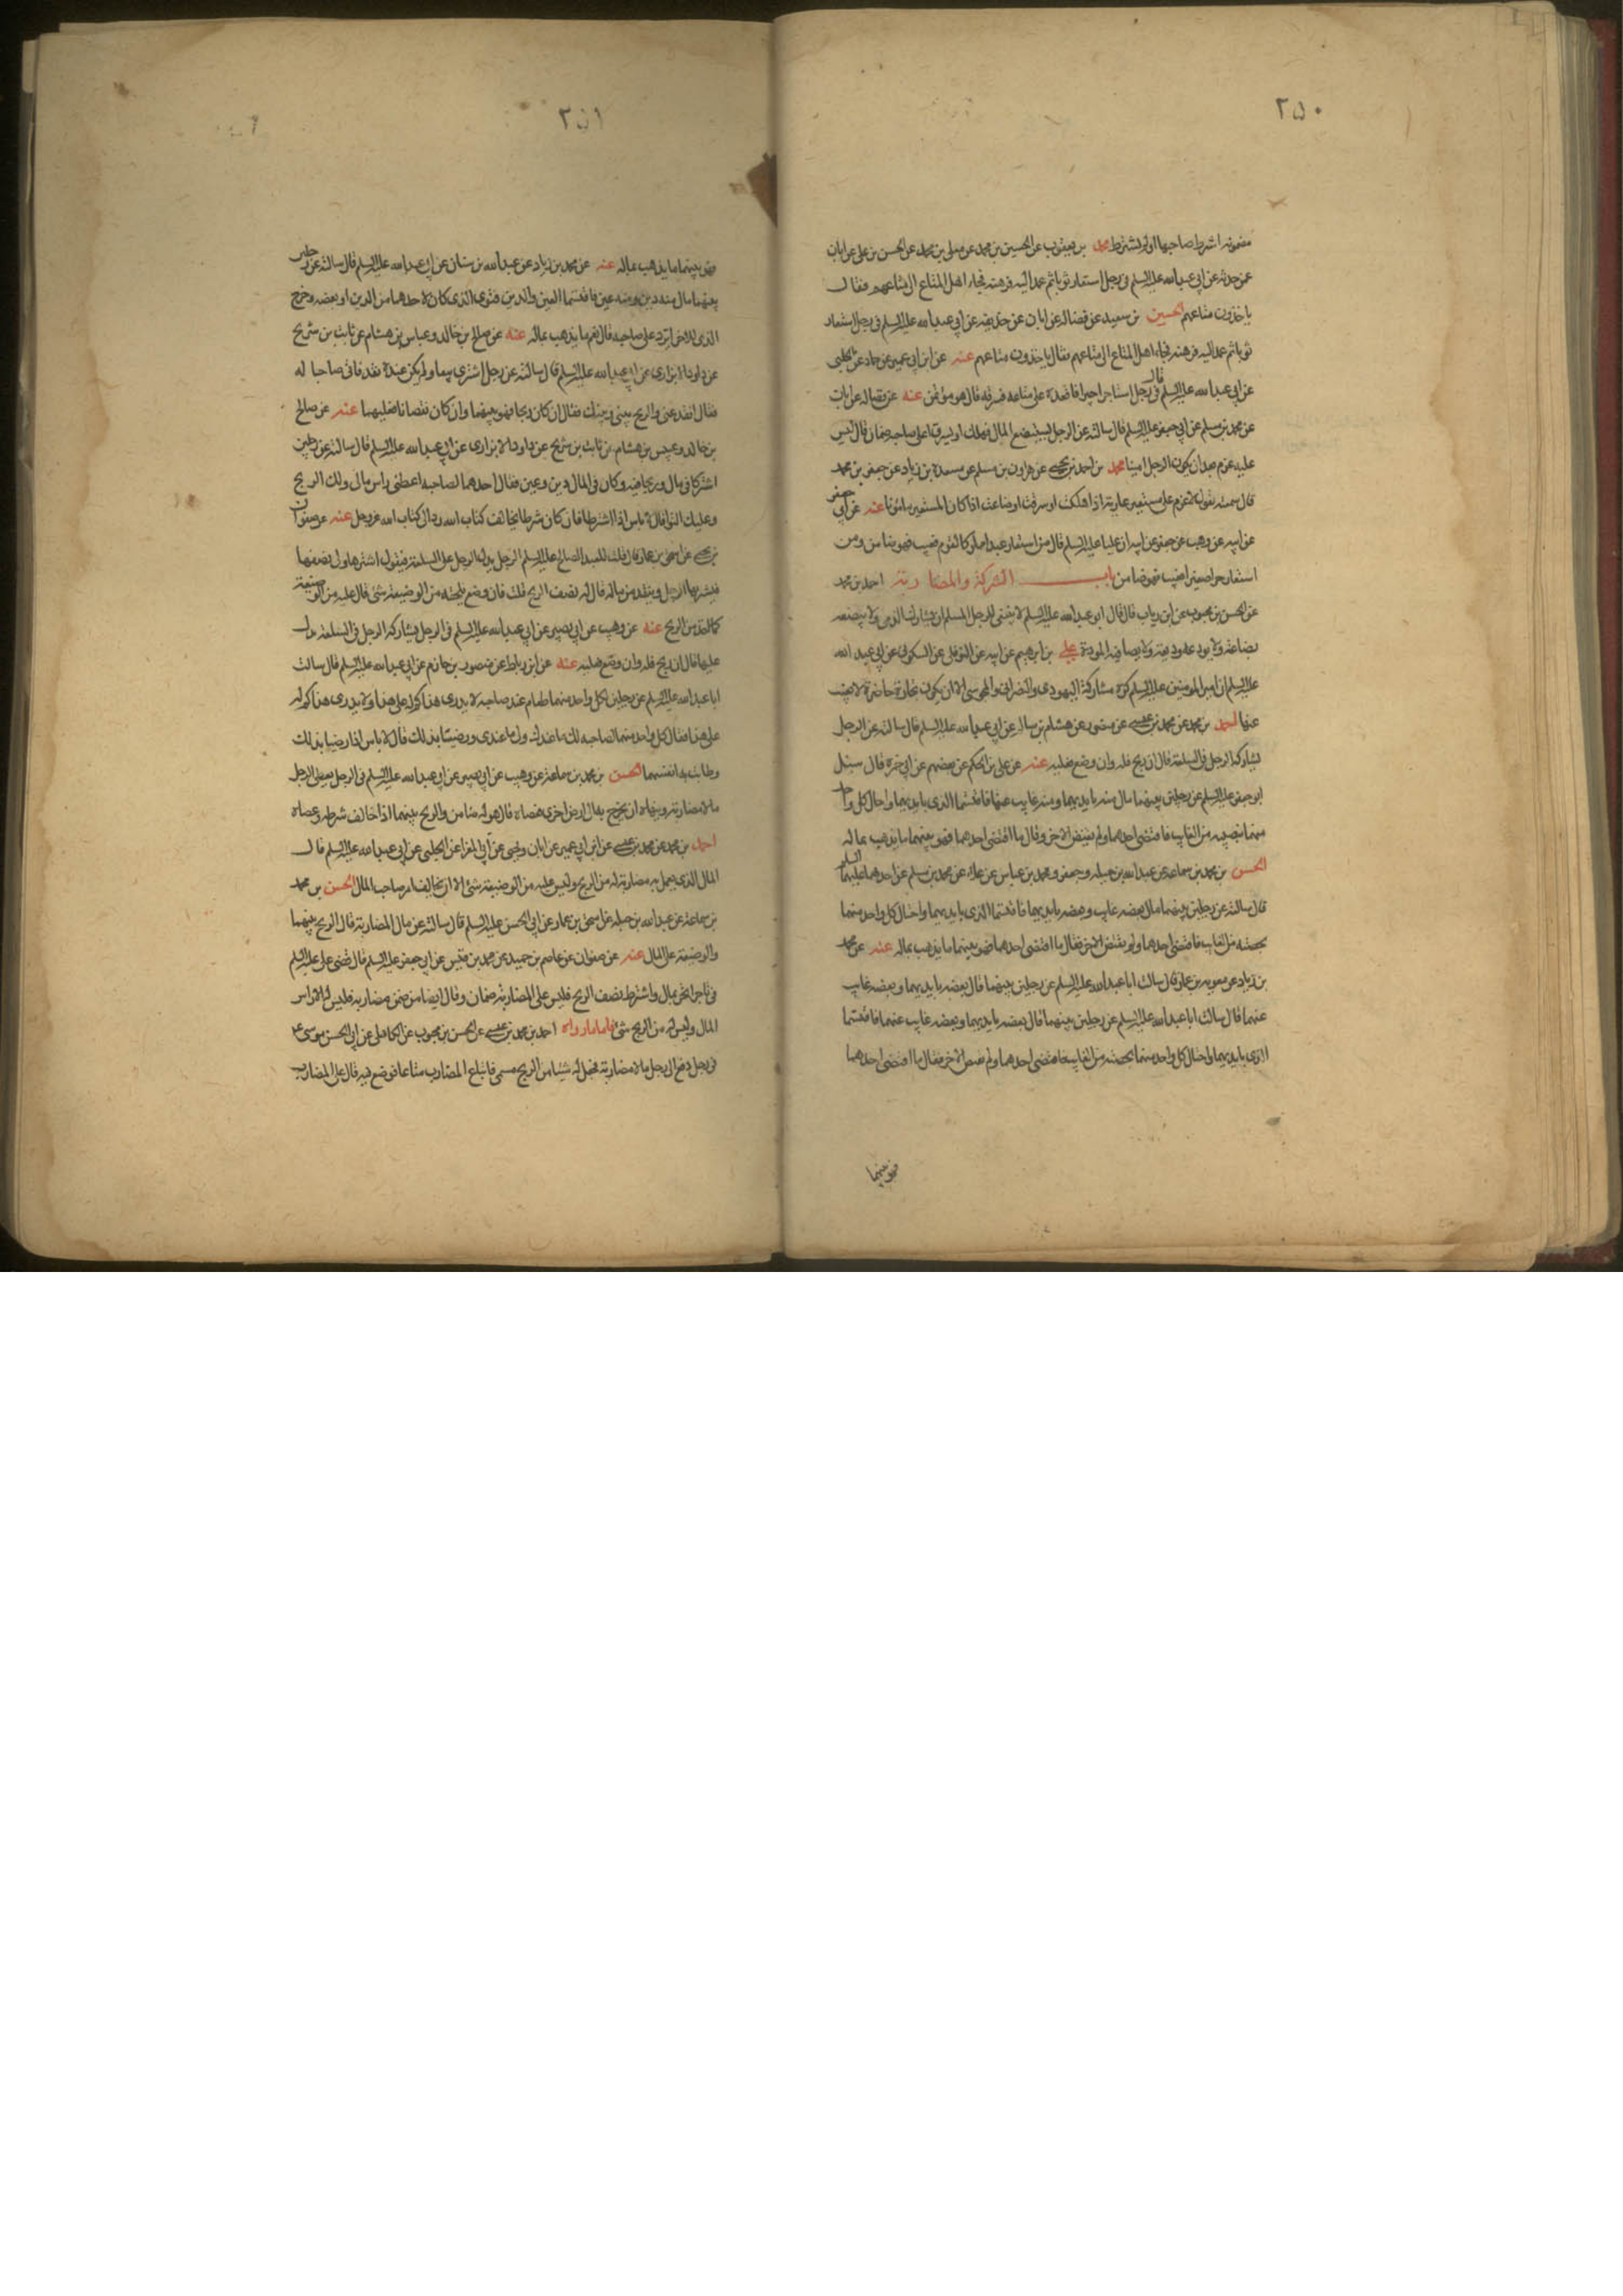 ٢٥٠
مضمونة اشترط صاحبها او لم يشترط محمد بن يعقوب عن الحسين بن محمد عن معلى بن محمد عن الحسن بن على عن ابان
عمن حدثه عن ابي عبدالله عليه السلم في رجل استعار ثوبا ثم عمد اليه فرهنه فجاء اهل المتاع الى متاعهم فقال
ياخذون متاعهم الحسين بن سعيد عن فضاله عن ابان عن حذيفه عن ابي عبدالله عليه السلم في رجل استعار
ثوبا ثم عمد اليه فرهنه فجاء اهل المتاع الى متاعهم فقال ياخذون متاعهم عنه عن ابن ابي عمير عن حماد عن الحلبى
عن ابي عبدالله عليه السلم قال في رجل استاجر اجيرا فاقعده على متاعه فسرقه قال هو مؤتمن عنه عن فضاله عن ابان
عن محمد بن مسلم عن ابي جعفر عليه السلم قال سالته عن الرجل يستبضع المال فيهلك او يسرق اعلى صاحبه ضمان قال ليس
عليه غرم بعد ان يكون الرجل امينا محمد بن احمد بن يحيى عن هرون بن مسلم عن مسعدة بن زياد عن جعفر بن محمد
قال سمعته يقول لا غرم على مستعير عارية اذا هلكت او سرقت او ضاعت اذا كان المستعير مامونا عنه عن ابي جعفر
عن ابيه عن وهب عن جعفر عن ابيه ان عليا عليه السلم قال من استعار عبدا مملوكا لقوم فعيب فهو ضامن ومن
استعار حرا صغيرا فعيب فهو ضامن باب الشركة والمضاربة احمد بن محمد
عن الحسن بن محبوب عن ابن رياب قال قال ابو عبدالله عليه السلم لا ينبغى للرجل المسلم ان يشارك الذمى ولا يبضعه
بضاعة ولا يودعه وديعة ولا يصافيه المودة على بن ابرهيم عن ابيه عن النوفلى عن السكونى عن ابي عبد الله
عليه السلم ان امير المومنين عليه السلم كره مشاركة اليهودى والنصرانى والمجوسى الا ان يكون تجارة حاضرة لا يغيب
عنها احمد بن محمد عن محمد بن عيسى عن منصور عن هشام بن سالم عن ابي عبدالله عليه السلم قال سالته عن الرجل
يشاركه الرجل في السلعة قال ان ربح فله وان وضع فعليه عنه عن على بن الحكم عن بعضهم عن ابي حمزه قال سئل
ابو جعفر عليه السلم عن رجلين بينهما مال منه بايديهما ومنه غايب عنهما فاقتسما الذى بايديهما واحال كل واحد
منهما بنصيبه من الغايب فاقتضى احدهما ولم يقتض الاخر وقال ما اقتضى احدهما فهو بينهما ما يذهب بماله
الحسن بن محمد بن سماعه عن عبدالله بن جبله وجعفر ومحمد بن عباس عن علاء عن محمد بن مسلم عن احدهما عليهما السلم
قال سالته عن رجلين بينهما مال بعضه غايب وبعضه بايديهما فاقتسما الذى بايديهما واحتال كل واحد منهما
بحصته من الغايب فاقتضى احدهما ولم يقتض الاخر فقال ما اقتضى احدهما فهو بينهما ما يذهب بماله عنه عن محمد
بن زياد عن معويه بن عمار قال سالت ابا عبدالله عليه السلم عن رجلين بينهما قال بعضه بايديهما وبعضه غايب
عنهما قال سالت ابا عبدالله عليه السلم عن رجلين بينهما قال بعضه بايديهما وبعضه غايب عنهما فاقتسما
الذى بايديهما واحتال كل واحد منهما بحصته من الغايب فاقتضى احدهما ولم يقتض الاخر فقال ما اقتضى احدهما
فهو بينهما
٢٥١
فهو بينهما ما يذهب بماله عنه عن محمد بن زياد عن عبدالله بن سنان عن ابي عبدالله عليه السلم قال سالته عن رجلين
بينهما مال منه دين ومنه عين فاقتسما العين والدين فتوى الذى كان لاحدهما من الدين او بعضه وخرج
الذى للاخر ايرد على صاحبه قال نعم ما يذهب بماله عنه عن صالح بن خالد وعباس بن هشام عن ثابت بن شريح
عن داود الابزارى عن ابي عبدالله عليه السلم قال سالته عن رجل اشترى بيعا ولم يكن عنده نقد فاتى صاحبا له
فقال انقد عنى والربح بينى وبينك فقال ان كان ربحا فهو بينهما وان كان نقصانا فعليهما عنه عن صالح
بن خالد وعبيس بن هشام عن ثابت بن شريح عن داود الابزارى عن ابي عبدالله عليه السلم قال سالته عن رجلين
اشتركا في مال وربحا فيه وكان في المال دين وعين فقال احدهما لصاحبه اعطنى راس مالى ولك الربح
وعليك التوا فقال لا باس اذا اشترطا فان كان شرطا يخالف كتاب الله رد الى كتاب الله عز وجل عنه عن صفوان
بن يحيى عن اسحق بن عمار قال قلت للعبد الصالح عليه السلم الرجل يدل الرجل على السلعة فيقول اشترها ولى نصفها
فيشتريها الرجل وينقد من ماله قال له نصف الربح قلت فان وضع يلحقه من الوضيعة شئ قال عليه من الوضيعة
كما اخذ من الربح عنه عن وهيب عن ابي بصير عن ابي عبدالله عليه السلم في الرجل يشاركه الرجل في السلعة يدل
عليها قال ان ربح فله وان وضع فعليه عنه عن ابن رباط عن منصور بن حازم عن ابي عبدالله عليه السلم قال سالت
ابا عبدالله عليه السلم عن رجلين لكل واحد منهما طعام عند صاحبه لا يدرى هذا كم له على هذا ولا يدرى هذا كم له
على هذا فقال كل واحد منهما لصاحبه لك ما عندك ولى ما عندى ورضيا بذلك قال لا باس اذا رضيا بذلك
وطابت به انفسهما الحسن بن محمد بن سماعة عن وهيب عن ابي بصير عن ابي عبدالله عليه السلم في الرجل يعطى الرجل
مالا مضاربة وينهاه ان يخرج به الى ارض اخرى فعصاه قال هو له ضامن والربح بينهما اذا خالف شرطه وعصاه
احمد بن محمد عن محمد بن عيسى عن ابن ابي عمير عن ابان ويحيى عن ابي المغرا عن الحلبى عن ابي عبدالله عليه السلم قال
المال الذى يعمل به مضاربة له من الربح وليس عليه من الوضيعة شئ الا ان يخالف امر صاحب المال الحسن بن محمد
بن سماعة عن عبدالله بن جبله عن اسحق بن عمار عن ابي الحسن عليه السلم قال سالته عن مال المضاربة قال الربح بينهما
والوضيعة على المال عنه عن صفوان عن عاصم بن حميد عن محمد بن قيس عن ابي جعفر عليه السلم قال قضى على عليه السلم
في تاجر اتجر بمال واشترط نصف الربح فليس على المضاربة ضمان وقال ايضا من ضمن مضاربه فليس له الا راس
المال وليس له من الربح شئ فاما ما رواه احمد بن محمد بن عيسى عن الحسن بن محبوب عن الكاهلى عن ابي الحسن موسى ع
في رجل دفع الى رجل مالا مضاربة فجعل له شيئا من الربح مسمى فابتاع المضارب متاعا فوضع فيه قال على المضارب